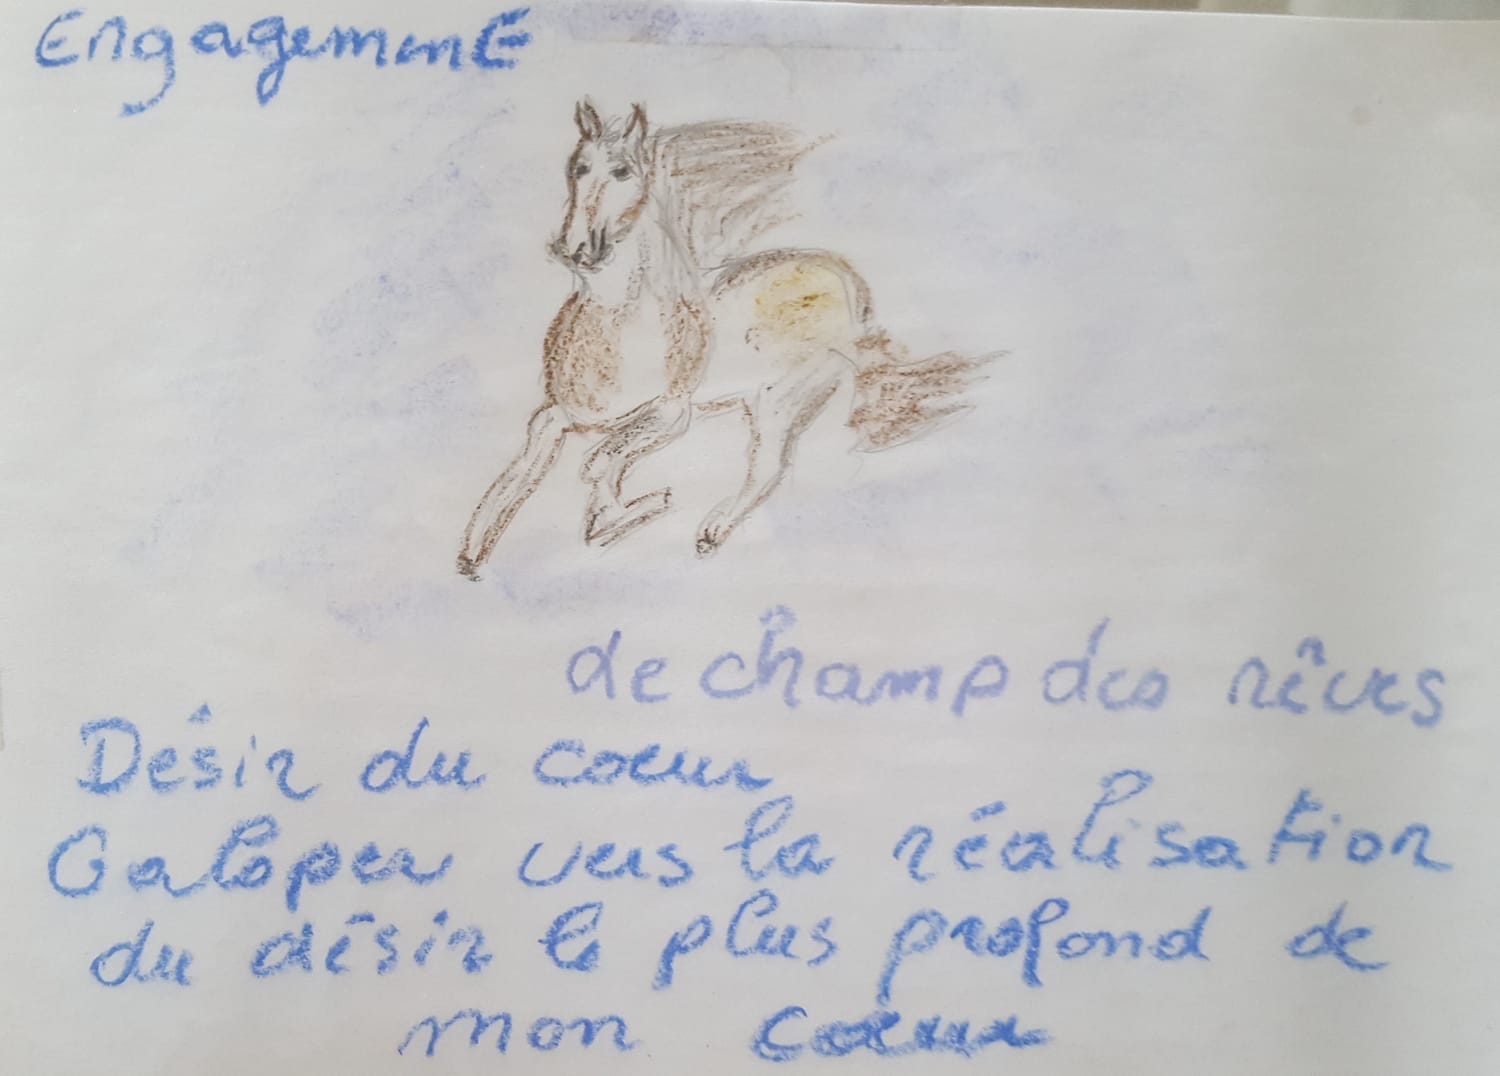 Engagement
de champ des rêves
Désir du coeur
Galoper vers la réalisation
du désir le plus profond de
mon coeur